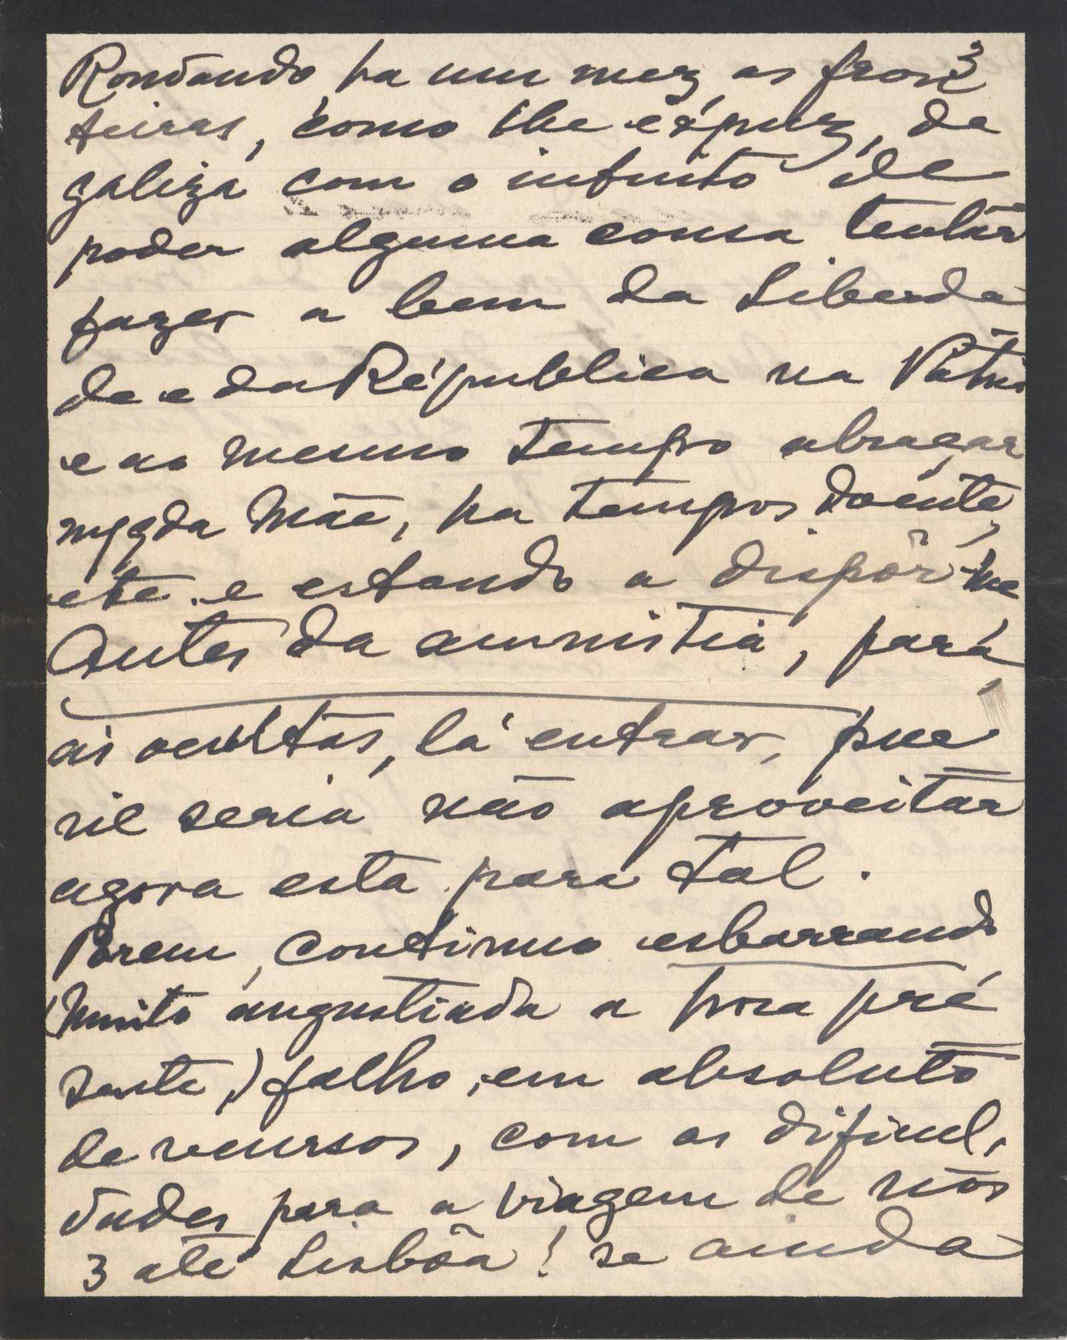 3
Rondando, ha um mez, as fron
teiras, como lhe expuz, da
galiza com o intuito de
poder alguma cousa tentar
fazer a bem da Liberda
de e da República na Pátria
e ao mesmo tempo abraçar
da Mãe, ha tempos doente,
etc. e estando a dispôr-me
Antes da amnistia, para,
ás ocultas, lá entrar, pue
ril seria não aproveitar
agora esta para tal.
Porem, continuo esbarrando
(Muito angustiada a hora pré
sente,) falho, em absoluto
de recursos, com as dificul,
dades para a viagem de nós
3 até Lisbôa! se ainda